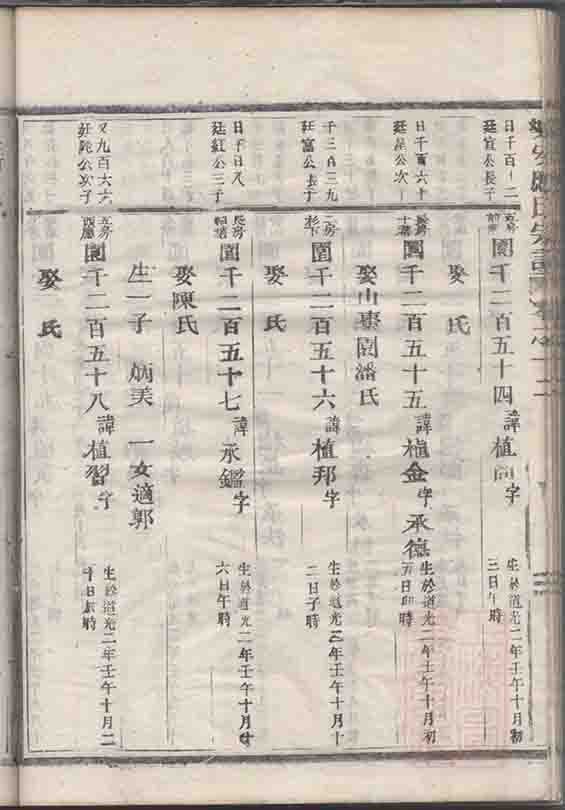 日千百十二
廷宜公長子
圍千二百五十四 諱植 字
生於道光二年壬午十月初
三日午時
娶 氏
日千百六十
廷 公次子
長房
圍千二百五十五 諱植金 字承德
生於道光二年壬午十月初
五日卯時
娶山 園潘氏
千三百三九
廷富公長子
二房
杉下
圍千二百五十六 諱植邦 字
生於道光二年壬午十月十
二日子時
娶 氏
日千日八
廷紅公三子
長房
圍千二百五十七 諱承鑑 字
生於道光二年壬午十月廿
六日午時
娶陳氏
生一子 炳美 一女適郭
又九百六六
廷 公次子
五房
西廳
圍千二百五十八 諱植習 字
生於道光二年壬午十月二
十日辰時
娶 氏